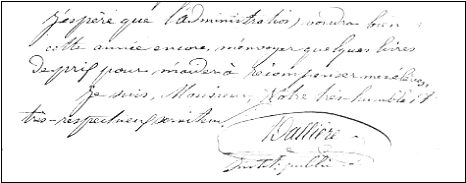 J'espère que l'administration, voudra bien
cette année encore, m'envoyer quelques livres
de prix pour m'aider à récompenser mes élèves.
Je suis, Monsieur, Votre très humble et
très-respectueux serviteur.
Dallière
Instit. public